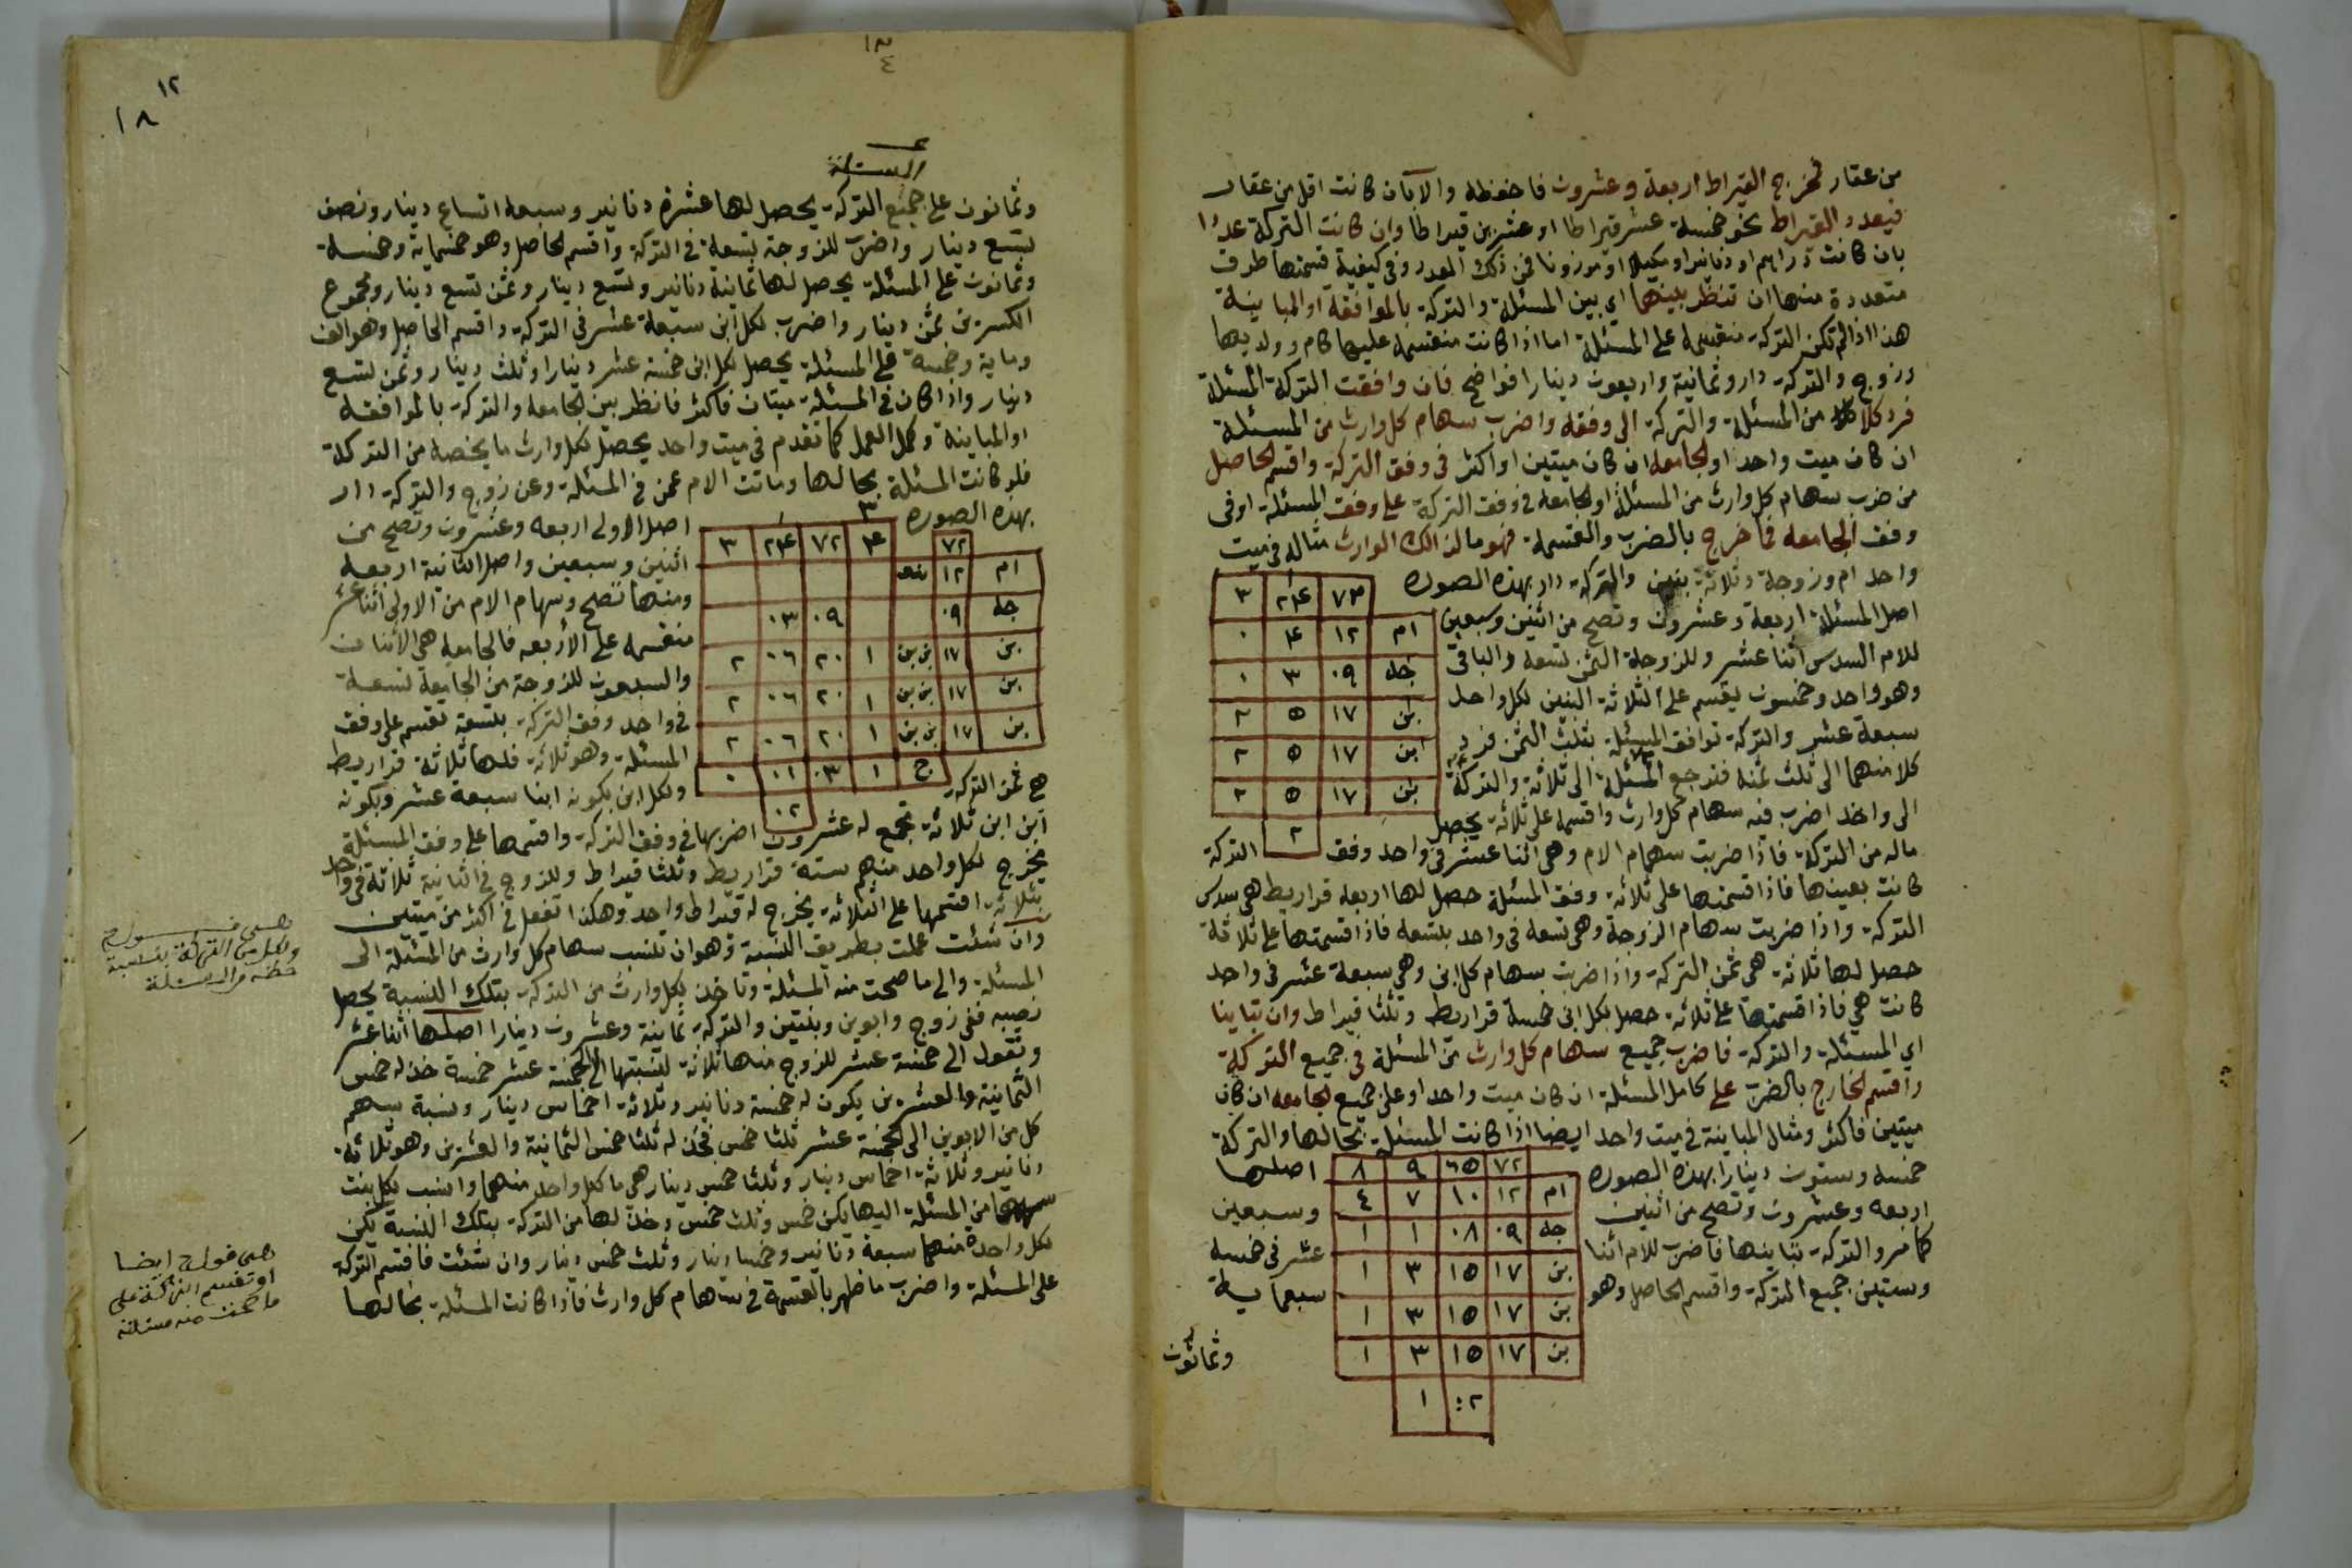 من عقار فمخرج القيراط اربعة وعشرون فاحفظه والا بان كانت اقل من عقار
فبعدد القيراط نحو خمسة عشر قيراطا او عشرين قيراطا وان كانت التركة عددا
بان كانت دراهم او دنانير او مكيلا او موزونا فمن ذلك العدد وفي كيفية قسمتها طرق
متعددة منها ان تنظر بينهما اي بين المسئلة والتركة بالموافقة او المباينة
هذا اذا لم تكن التركة منقسمة على المسئلة اما اذا كانت منقسمة عليها كام وولديها
وزوج والتركة دار وثمانية واربعون دينارا فواضح فان وافقت التركة المسئلة
فرد كلا من المسئلة والتركة الى وفقه واضرب سهام كل وارث من المسئلة
ان كان ميت واحد او الجامعه ان كان ميتين او اكثر في وفق التركة واقسم الحاصل
من ضرب سهام كل وارث من المسئلة او الجامعه في وفق التركة على وفق المسئلة او في
وفق الجامعه فما خرج بالضرب والقسمة فهو ما لذالك الوارث مثاله في ميت
واحد ام وزوجة وثلاثة بنين والتركة دار بهذه الصورة
٧٢ ٢٤ ٣
ام ١٢ ٤ ٠
جه ٠٩ ٣ ٠
ابن ١٧ ٥ ٢
ابن ١٧ ٥ ٢
ابن ١٧ ٥ ٢
٢
اصل المسئلة اربعة وعشرون وتصح من اثنين وسبعين
للام السدس اثنا عشر وللزوجة الثمن تسعه والباقي
وهو واحد وخمسون يقسم على الثلاثة البنين لكل واحد
سبعة عشر والتركة توافق المسئلة بثلث الثمن فرد
كلا منهما الى ثلث ثمنه فترجع المسئلة الى ثلاثة والتركة
الى واحد اضرب فيه سهام كل وارث واقسمه على ثلاثة يحصل
ماله من التركة فاذا ضربت سهام الام وهي اثنا عشر في واحد وفق التركة
كانت بعينها فاذا قسمتها على ثلاثة وفق المسئلة حصل لها اربعة قراريط هي سدس
التركة واذا ضربت سهام الزوجة وهي تسعه في واحد بتسعه فاذا قسمتها على ثلاثة
حصل لها ثلاثة هي ثمن التركة واذا ضربت سهام كل ابن وهي سبعة عشر في واحد
كانت هي فاذا قسمتها على ثلاثة حصل لكل ابن خمسة قراريط وثلثا قيراط وان تباينا
اي المسئلة والتركة فاضرب جميع سهام كل وارث من المسئلة في جميع التركة
واقسم الخارج بالضرب على كامل المسئلة ان كان ميت واحد او على جميع الجامعه ان كان
ميتين فاكثر ومثال المباينة في ميت واحد ايضا اذا كانت المسئلة بحالها والتركة
خمسه وستون دينارا بهذه الصوره اصلها
اربعه وعشرون وتصح من اثنين وسبعين
كما مر والتركة تباينها فاضرب للام اثنا عشر في خمسة
وستين جميع التركة واقسم الحاصل وهو سبعماية
٧٢ ٦٥ ٩ ٨
ام ١٢ ١٠ ٧ ٤
جه ٠٩ ٠٨ ١ ١
بن ١٧ ١٥ ٣ ١
بن ١٧ ١٥ ٣ ١
بن ١٧ ١٥ ٣ ١
٢ ١
وثمانون
١٢
١٨
١٣
٤
المسئلة
وثمانون على جميع التركة يحصل لها عشرة دنانير وسبعة اتساع دينار ونصف
تسع دينار واضرب للزوجة تسعة في التركة واقسم الحاصل وهو خمسماية وخمسة
وثمانون على المسئلة يحصل لها ثمانية دنانير وتسع دينار وثمن تسع دينار ومجموع
الكسرين ثمن دينار واضرب لكل ابن سبعة عشر في التركة واقسم الحاصل وهو الف
وماية وخمسة على المسئلة يحصل لكل ابن خمسة عشر دينارا وثلث دينار وثمن تسع
دينار واذا كان في المسئلة ميتان فاكثر فانظر بين الجامعه والتركة بالموافقة
او المباينة وكمل العمل كما تقدم في ميت واحد يحصل لكل وارث ما يخصه من التركة
فلو كانت المسئلة بحالها وماتت الام عمن في المسئلة وعن زوج والتركة دار
بهذه الصورة
٣
٧٢ ٤ ٧٢ ٢٤ ٣
ام ١٢
جه ٠٩ ٠٩ ٠٣
بن ١٧ بن بن ١ ٢٠ ٠٦ ٢
بن ١٧ بن بن ١ ٢٠ ٠٦ ٢
بن ١٧ بن بن ١ ٢٠ ٠٦ ٢
ج ١ ٠٣ ٠١ ٠
٠٢
اصل الاولى اربعه وعشرون وتصح من
اثنين وسبعين واصل الثانية اربعه
ومنها تصح وسهام الام من الاولى اثنا عشر
منقسمه على الاربعه فالجامعه هي الاثنان
والسبعون للزوجة من الجامعة تسعة
في واحد وفق التركة بتسعة تقسم على وفق
المسئلة وهو ثلاثة فلها ثلاثة قراريط
هي ثمن التركة ولكل ابن بكونه ابنا سبعة عشر وبكونه
ابن ابن ثلاثة تجمع له عشرون اضربها في وفق التركة واقسمها على وفق المسئلة
يخرج لكل واحد منهم ستة قراريط وثلثا قيراط وللزوج في الثانية ثلاثة في واحد
بثلاثة اقسمها على الثلاثة يخرج له قيراط واحد وهكذا تفعل في اكثر من ميتين
وان شئت عملت بطريق النسبة وهو ان تنسب سهام كل وارث من المسئلة الى
المسئلة والى ما صحت منه المسئلة وتاخذ لكل وارث من التركة بتلك النسبة يحصل
نصيبه ففي زوج وابوين وبنتين والتركة ثمانية وعشرون دينارا اصلها اثنا عشر
وتعول الى خمسة عشر للزوج منها ثلاثة نسبتها الى الخمسة عشر خمسة خذ له خمس
الثمانية والعشرين يكون له خمسة دنانير وثلاثة اخماس دينار ونسبة سهم
كل من الابوين الى الخمسة عشر ثلثا خمس فخذ له ثلثا خمس الثمانية والعشرين وهو ثلاثة
دنانير وثلاثة اخماس دينار وثلثا خمس دينار هي ما لكل واحد منهما وانسب لكل بنت
سهمها من المسئلة اليها يكن خمس وثلث خمس وخذ لها من التركة بتلك النسبة يكن
لكل واحدة منهما سبعة دنانير وخمسا دينار وثلث خمس دينار وان شئت فاقسم التركة
على المسئلة واضرب ما ظهر بالقسمة في سهام كل وارث فاذا كانت المسئلة بحالها
ولكل من التركة بنسبة
حظه من المسئلة
هي قوله ايضا
او تقسم التركة على
ما صحت منه مسئلة